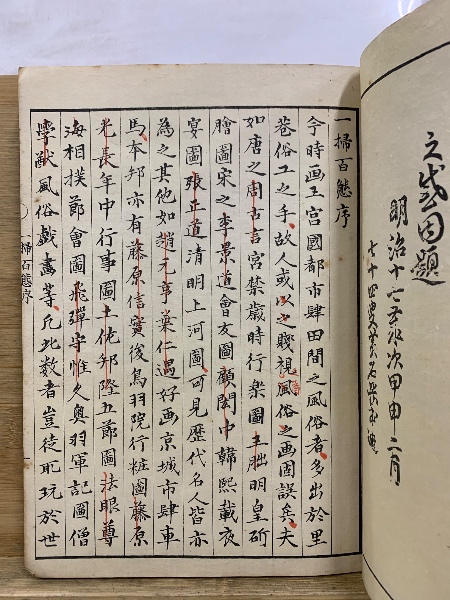 明治十七年歳次甲申二月
七十四叟
一掃百態序
今時画王宮國都市肆田間之風俗者多出於里
巷俗工之手故人或以之賤視風俗之画固誤矣夫
如唐之周古言宮禁歳時行樂圖王朏明皇斫
膾圖宋之李景道會友圖顧閎中韓熙載夜
宴圖張正道清明上河圖可見歴代名人皆亦
為之其他如趙元亨巣仁遇好画京城市肆車
馬本邦亦有藤原信實後鳥羽院行粧圖藤原
光長年中行事圖土佐邦隆五節圖法眼尊
海相撲節會圖飛彈守惟久奥羽軍記圖僧
學猷風俗戯畫等凡此数者豈徒耽玩於世
一掃百態序